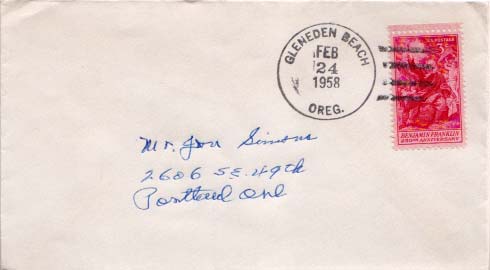 GLENEDEN BEACH
FEB
24
1958
OREG.
U.S. POSTAGE
3¢
BENJAMIN FRANKLIN
250TH ANNIVERSARY
Mr. Jon Simons
2606 S.E. 49th
Portland Ore